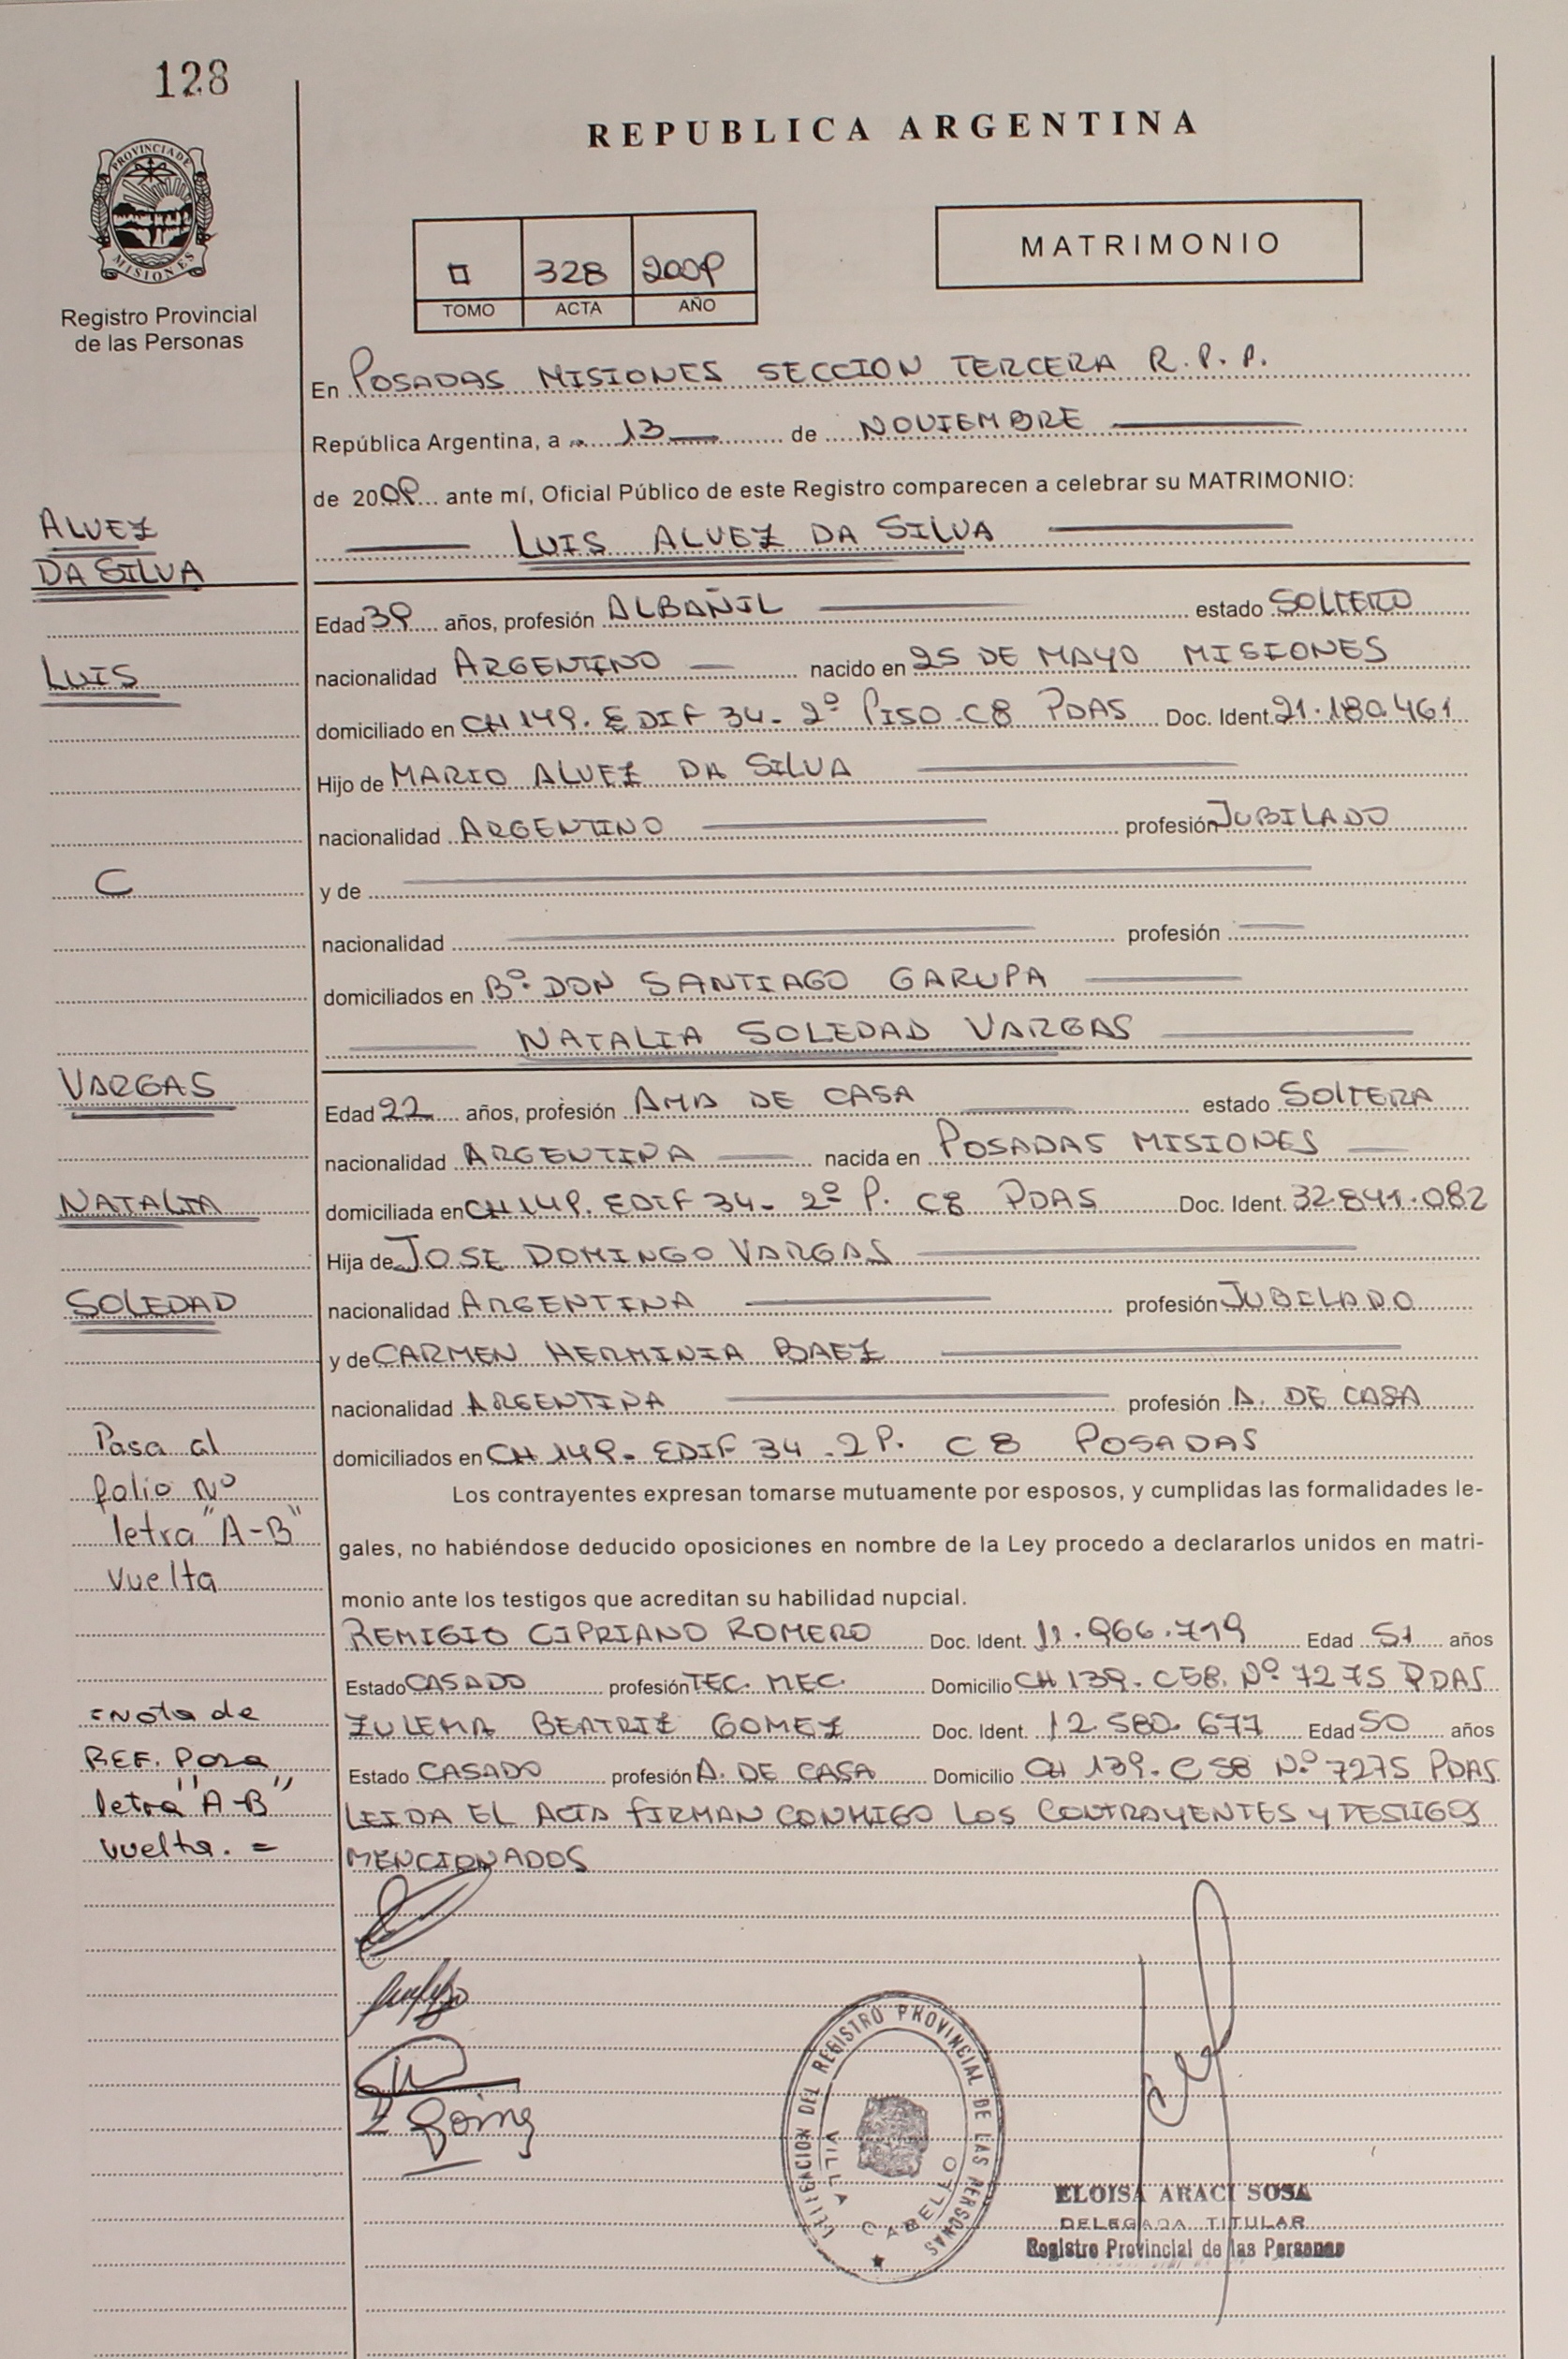 128
REPUBLICA ARGENTINA
PROVINCIA DE
MISIONES
Registro Provincial
de las Personas
328 2009
TOMO ACTA AÑO
MATRIMONIO
En POSADAS MISIONES SECCION TERCERA R.P.P.
República Argentina, a 13 de NOVIEMBRE
de 2009 ante mí, Oficial Público de este Registro comparecen a celebrar su MATRIMONIO:
ALVEZ
DA SILVA
LUIS ALVEZ DA SILVA
Edad 39 años, profesión ALBAÑIL estado SOLTERO
LUIS
nacionalidad ARGENTINO nacido en 25 DE MAYO MISIONES
domiciliado en CH 149. EDIF 34- 2º PISO C8 PDAS Doc. Ident. 21.180.461
Hijo de MARIO ALVEZ DA SILVA
nacionalidad ARGENTINO profesión JUBILADO
C
y de
nacionalidad profesión
domiciliados en Bº DON SANTIAGO GARUPA
NATALIA SOLEDAD VARGAS
VARGAS
Edad 22 años, profesión AMA DE CASA estado SOLTERA
nacionalidad ARGENTINA nacida en POSADAS MISIONES
NATALIA
domiciliada en CH 149. EDIF 34- 2º P. C8 PDAS Doc. Ident. 32.841.082
Hija de JOSE DOMINGO VARGAS
SOLEDAD
nacionalidad ARGENTINA profesión JUBILADO
y de CARMEN HERMINIA BAEZ
nacionalidad ARGENTINA profesión A. DE CASA
domiciliados en CH 149- EDIF 34-2 P. C8 POSADAS
Pasa al
folio Nº
letra "A-B"
vuelta
Los contrayentes expresan tomarse mutuamente por esposos, y cumplidas las formalidades le-
gales, no habiéndose deducido oposiciones en nombre de la Ley procedo a declararlos unidos en matri-
monio ante los testigos que acreditan su habilidad nupcial.
REMIGIO CIPRIANO ROMERO Doc. Ident. 11.966.719 Edad 51 años
Estado CASADO profesión TEC. MEC. Domicilio CH 139- C58. Nº 7275 PDAS
=Nota de
REF. Pasa
letra "A-B"
vuelta. =
ZULEMA BEATRIZ GOMEZ Doc. Ident. 12.580.677 Edad 50 años
Estado CASADO profesión A. DE CASA Domicilio CH 139- C58 Nº 7275 PDAS
LEIDA EL ACTA FIRMAN CONMIGO LOS CONTRAYENTES Y TESTIGOS
MENCIONADOS
DELEGACION DEL REGISTRO PROVINCIAL DE LAS PERSONAS
VILLA CABELLO
ELOISA ARACI SOSA
DELEGADA TITULAR
Registro Provincial de las Personas